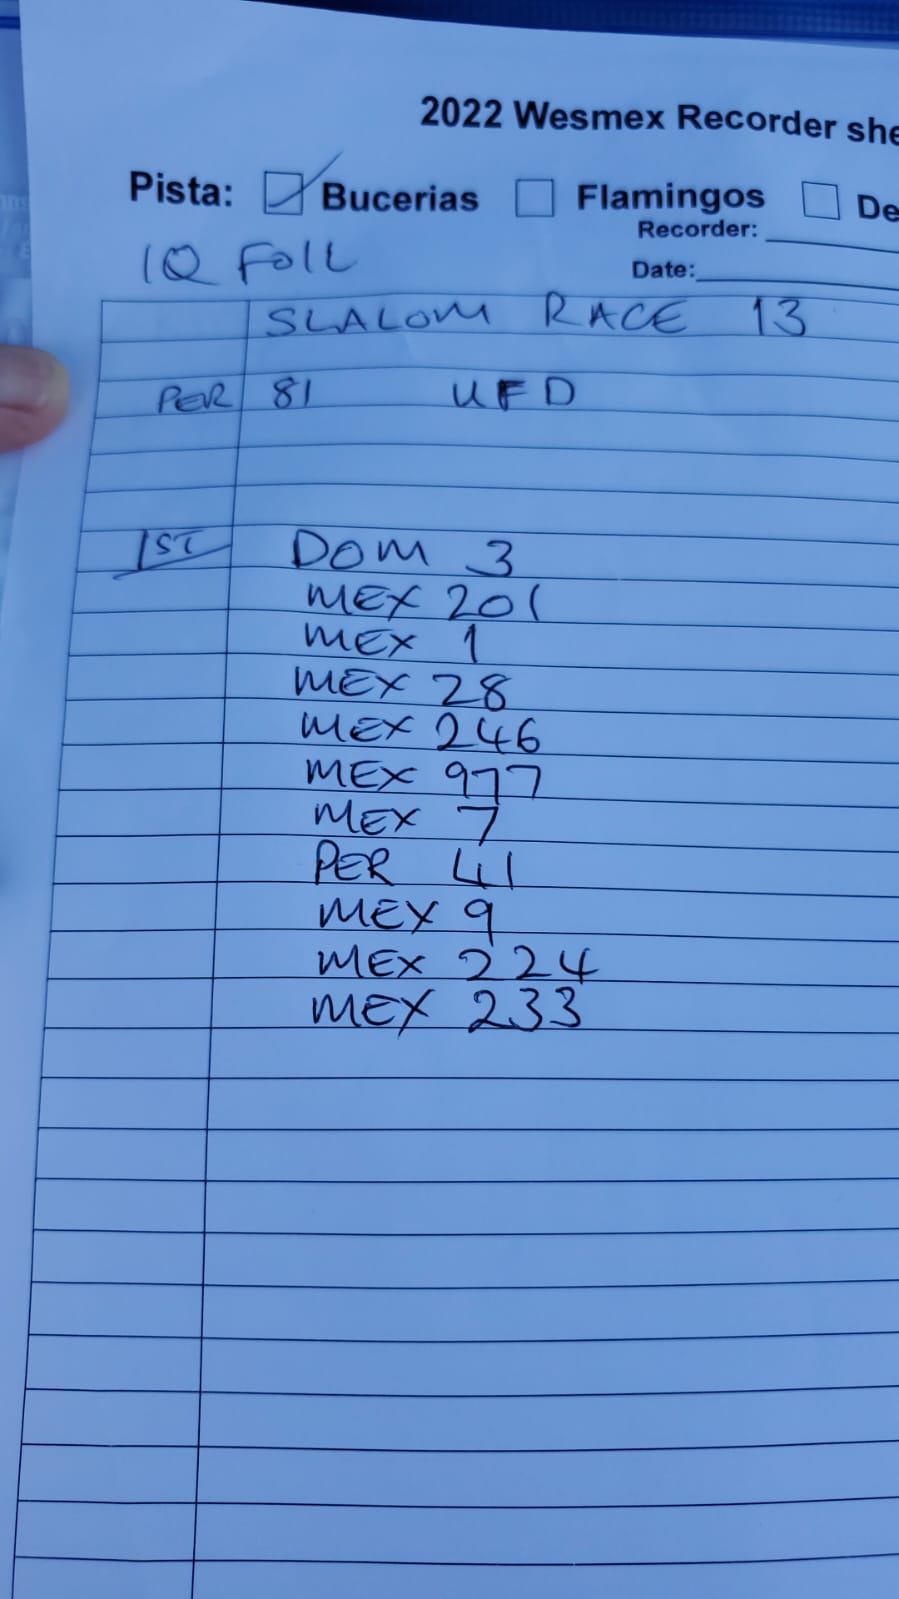 2022 Wesmex Recorder she
Pista: Bucerias Flamingos De
Recorder:
IQ FOIL
Date:
SLALOM RACE 13
PER 81 UFD
1ST DOM 3
MEX 201
MEX 1
MEX 28
MEX 246
MEX 977
MEX 7
PER 41
MEX 9
MEX 224
MEX 233